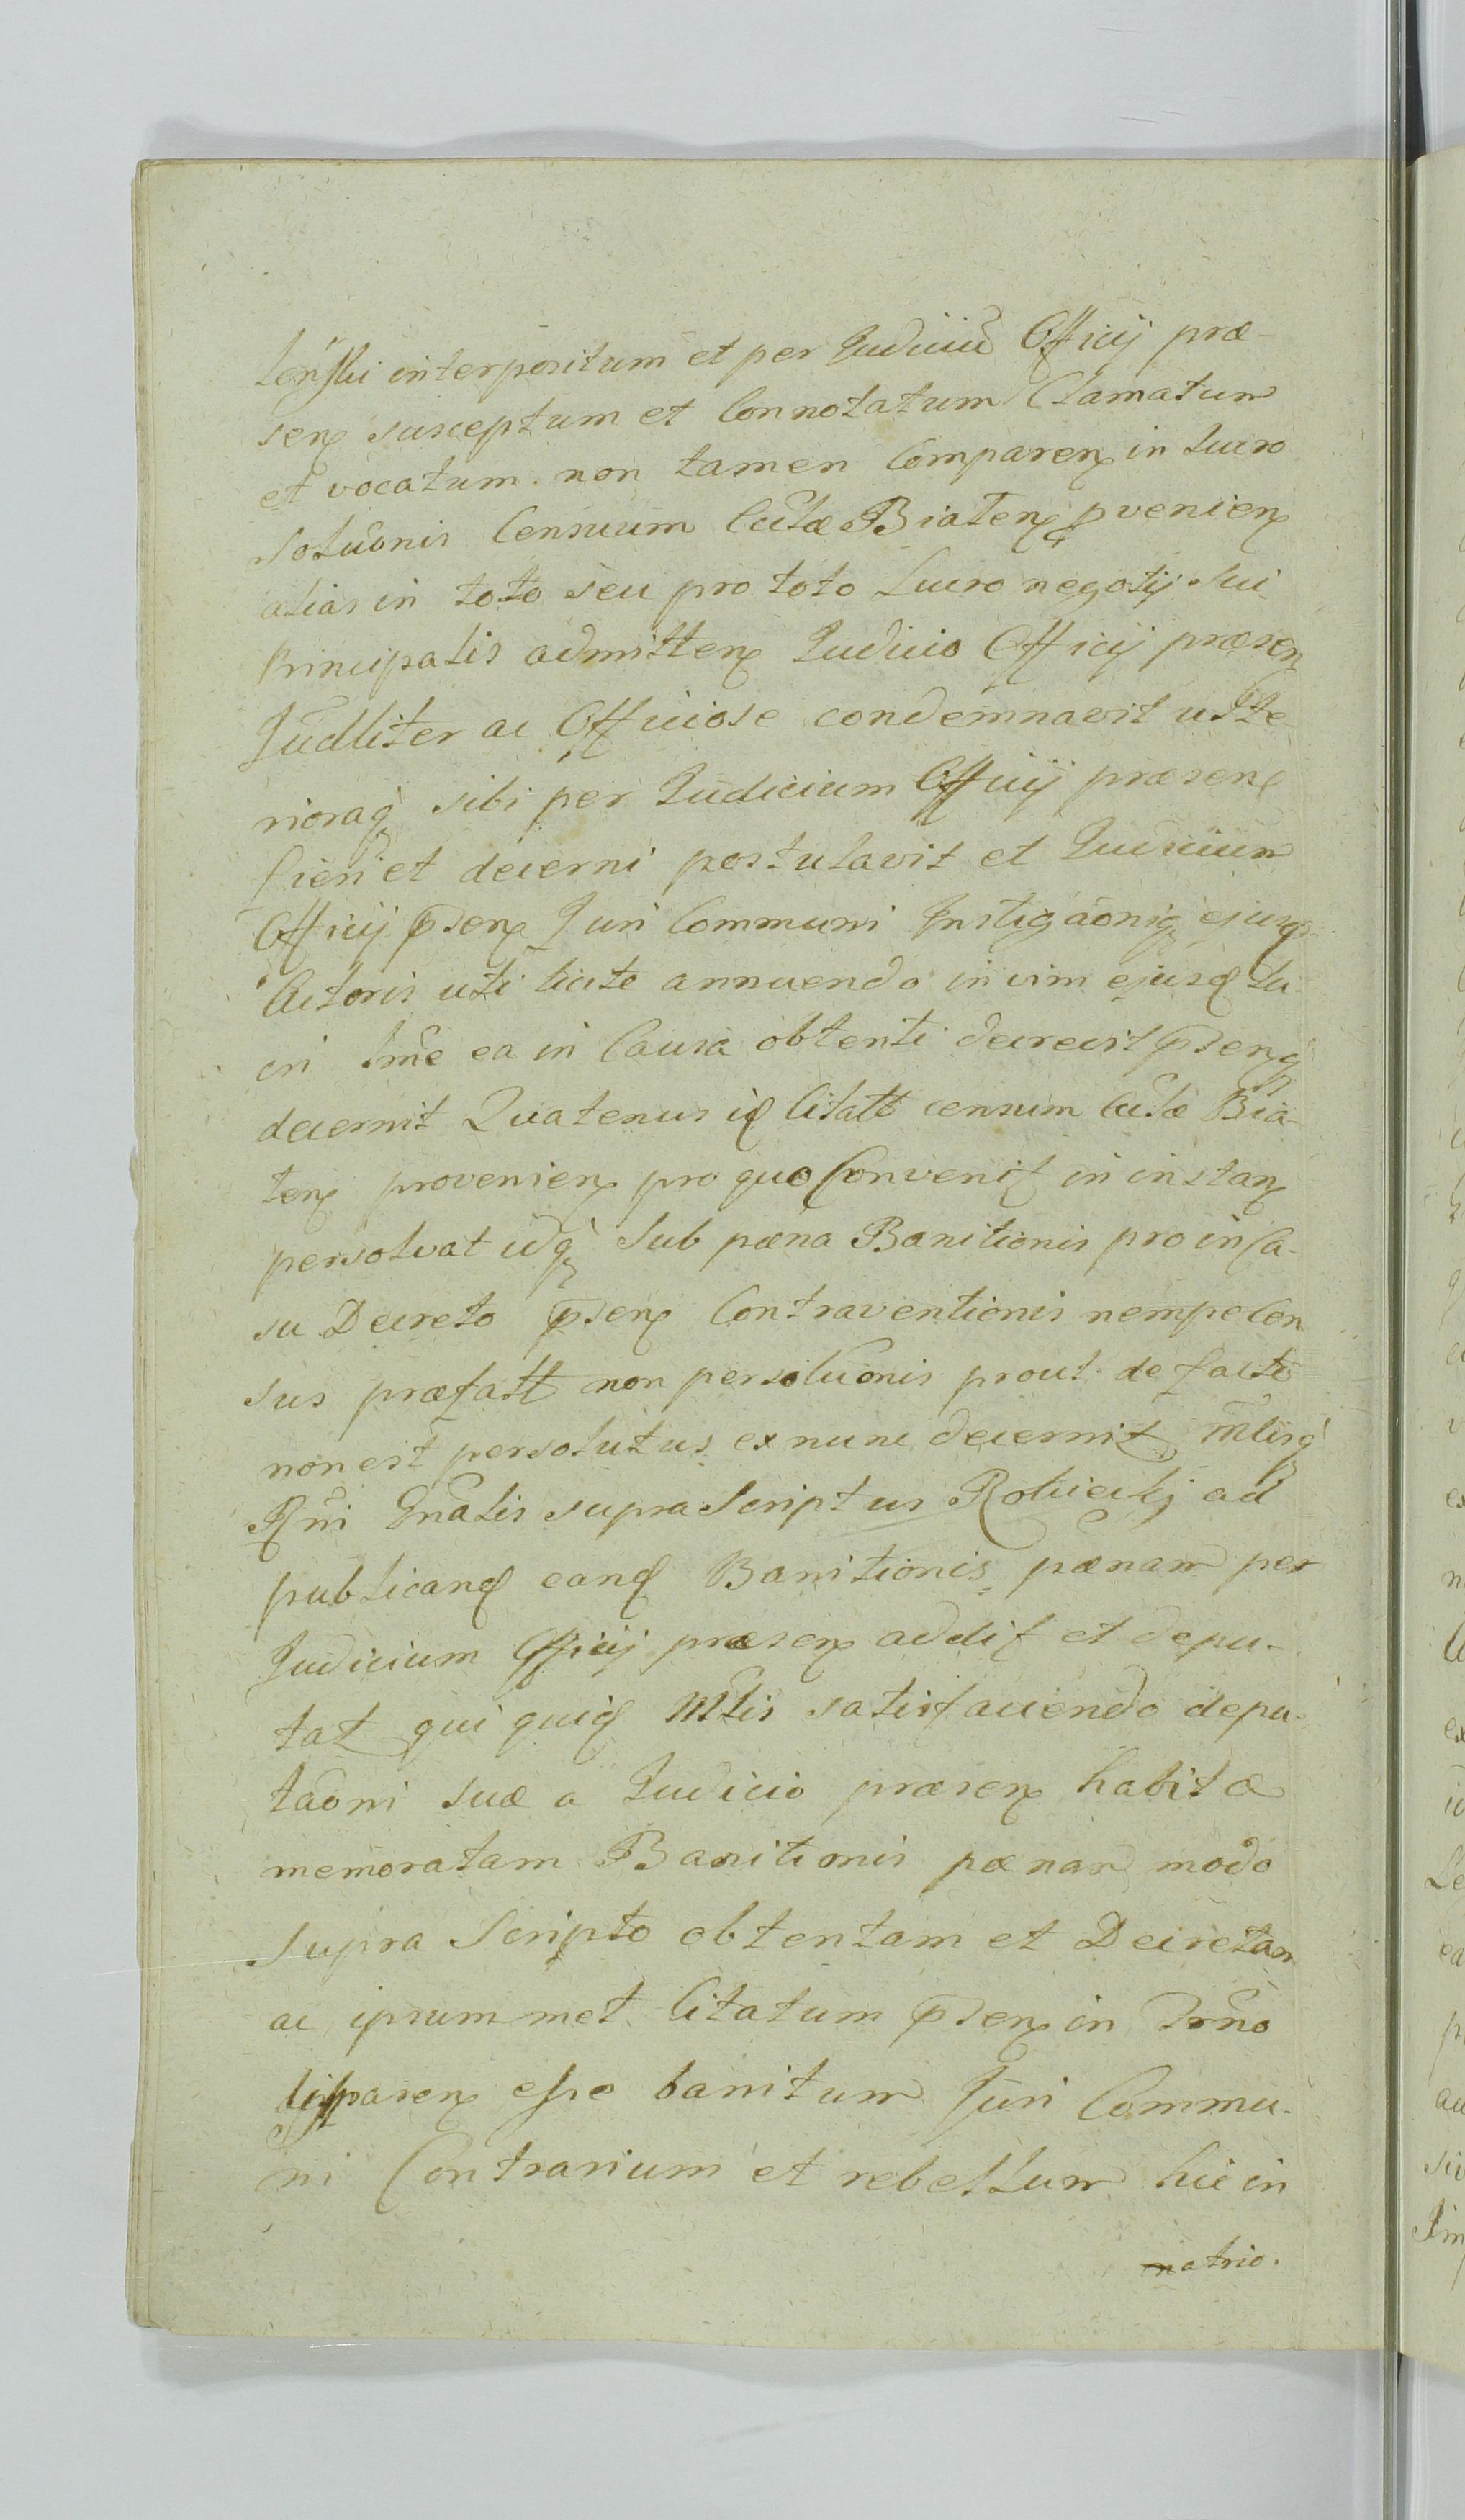 lenski interpositum et per Judiciũ Officij præ-
sen susceptum et Connotatum Clamatum
et vocatum non tamen Comparen in Lucro
soluõnis Censuum Ecclæ Biaten pvenien
alias in toto seu pro toto Lucro negotij sui
Principalis admitten Judicio Officij præsen
Judliter ac Officiose condemnavit ulte
rioraq sibi per Judicium Officij præsen
fieri et decerni postulavit et Judicium
Officij Psen Juri Communi Instigaõniq ejusq
Actoris uti licite annuendo in vim ejusd Lu
cri tme ea in Causa obtenti decrevit Psenq
decernit Quatenus id Citatt censum Ecclæ Bia-
ten provenien pro quo Convenit in instan
persolvat idq sub pæna Banitionis pro in Ca-
su Decreto Psen Contraventionis nempe Cen
sus præfatt non persoluõnis prout de facto
non est persolutus ex nunc decernit Mlisq
Rni Gnalis supra Scriptus Rolicckj ad
publicand eand Banitionis pænam per
Judicium Officij præsen addit et depu-
tat qui quid Mlis satisfaciendo depu-
taõni suæ a Judicio præsen habitæ
memoratam Banitionis pænam modo
supra Scripto obtentam et Decretam
ac ipsummet Citatum Psen in Trno
esse banitum Juri Commu-
ni Contrarium et rebellum hic in
atrio.